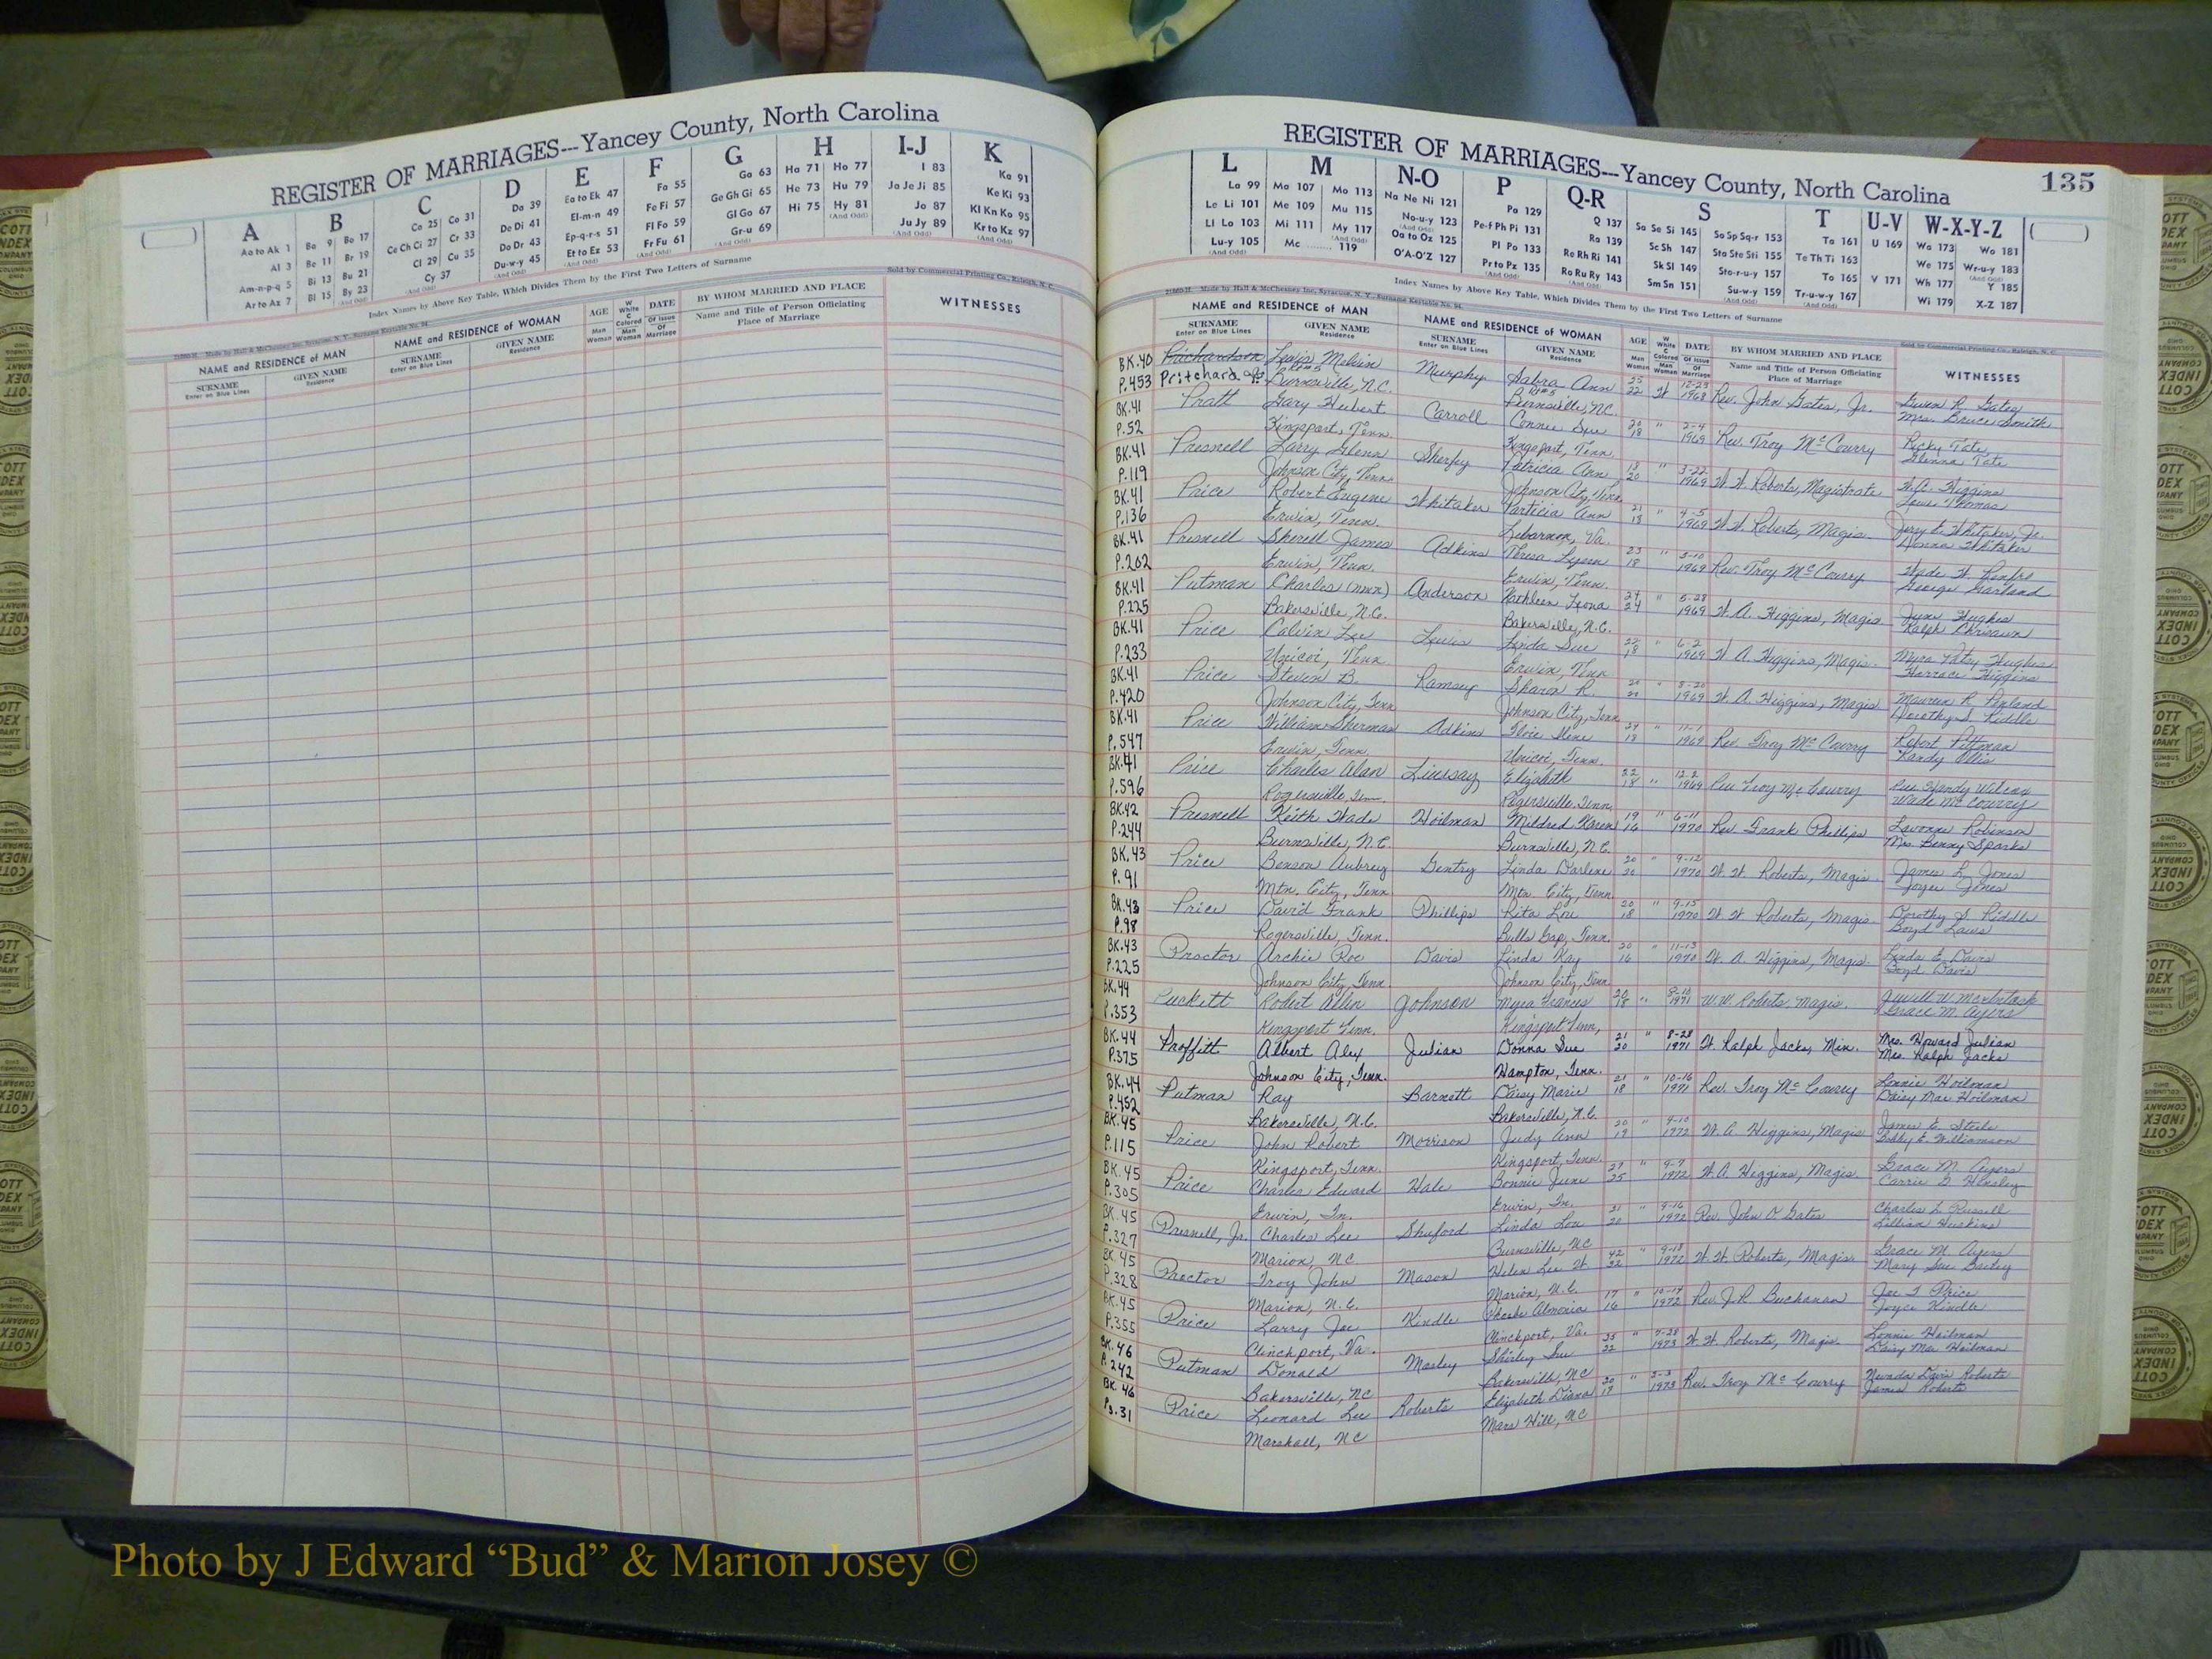 REGISTER OF MARRIAGES---Yancey County, North Carolina
A B C D E F G H I-J K
Aa to Ak 1
Al 3
Am-n-p-q 5
Ar to Az 7
Ba 9 Bo 17
Be 11 Br 19
Bi 13 Bu 21
Bl 15 By 23
Ca 25 Co 31
Ce Ch Ci 27 Cr 33
Cl 29 Cu 35
Cy 37
Da 39
De Di 41
Do Dr 43
Du-w-y 45
Ea to Ek 47
El-m-n 49
Ep-q-r-s 51
Et to Ez 53
Fa 55
Fe Fi 57
Fl Fo 59
Fr Fu 61
Ga 63
Ge Gh Gi 65
Gl Go 67
Gr-u 69
Ha 71 Ho 77
He 73 Hu 79
Hi 75 Hy 81
I 83
Ja Je Ji 85
Jo 87
Ju Jy 89
Ka 91
Ke Ki 93
Kl Kn Ko 95
Kr to Kz 97
Index Names by Above Key Table, Which Divides Them by the First Two Letters of Surname
Sold by Commercial Printing Co., Raleigh, N. C.
NAME and RESIDENCE of MAN
SURNAME Enter on Blue Lines
GIVEN NAME Residence
NAME and RESIDENCE of WOMAN
SURNAME Enter on Blue Lines
GIVEN NAME Residence
AGE Man Woman
W White C Colored Man Woman
DATE Of Issue Of Marriage
BY WHOM MARRIED AND PLACE
Name and Title of Person Officiating
Place of Marriage
WITNESSES
REGISTER OF MARRIAGES---Yancey County, North Carolina 135
L M N-O P Q-R S T U-V W-X-Y-Z
La 99
Le Li 101
Li Lo 103
Lu-y 105
Ma 107 Mo 113
Me 109 Mu 115
Mi 111 My 117
Mc 119
Na Ne Ni 121
No-u-y 123
Oa to Oz 125
O'A-O'Z 127
Pa 129
Pe-f Ph Pi 131
Pl Po 133
Pr to Pz 135
Q 137
Ra 139
Re Rh Ri 141
Ro Ru Ry 143
Sa Se Si 145 Sa Sp Sq-r 153
Sc Sh 147 Sta Ste Sti 155
Sk Sl 149 Sto-r-u-y 157
Sm Sn 151 Su-w-y 159
Ta 161
Te Th Ti 163
To 165
Tr-u-w-y 167
U 169
V 171
Wa 173 Wo 181
We 175 Wr-u-y 183
Wh 177 Y 185
Wi 179 X-Z 187
Index Names by Above Key Table, Which Divides Them by the First Two Letters of Surname
NAME and RESIDENCE of MAN
SURNAME Enter on Blue Lines
GIVEN NAME Residence
NAME and RESIDENCE of WOMAN
SURNAME Enter on Blue Lines
GIVEN NAME Residence
AGE Man Woman
DATE Of Issue Of Marriage
BY WHOM MARRIED AND PLACE
Name and Title of Person Officiating
Place of Marriage
WITNESSES
BK.40 Richardson Lewis Melvin Murphy Sabra Ann 22 W 1968 Rev. John Gates, Jr. Gwen R. Gates
P.453 Pritchard Burnsville, N.C. Burnsville, NC. Mrs. Bruce Smith
BK.41 Pratt Gary Hubert Carroll Connie Sue 20 18 " 2-4 1969 Rev. Troy McCourry Ricky Tate
P.52 Kingsport, Tenn. Kingsport, Tenn. Glenna Tate
BK.41 Presnell Larry Glenn Sherfey Patricia Ann 18 20 " 3-22 1969 W. W. Roberts, Magistrate W.A. Higgins
P.119 Johnson City, Tenn. Johnson City, Tenn. Thomas
BK.41 Price Robert Eugene Whitaker Particia Ann 21 18 " 4-5 1969 W. W. Roberts, Magis. Jerry E. Whitaker, Jr.
P.136 Erwin, Tenn. Lebannon, Va. Donna Whitaker
BK.41 Presnell Sherell James Adkins Theresa 23 18 " 5-10 1969 Rev. Troy McCourry Wade W. Renfro
P.202 Erwin, Tenn. Erwin, Tenn. George Garland
BK.41 Putman Charles (nmn) Anderson Kathleen Leona 24 24 " 5-28 1969 W. A. Higgins, Magis. June Hughes
P.225 Bakersville, N.C. Bakersville, N.C. Ralph Chrisawn
BK.41 Price Calvin Lee Lewis Linda Sue 22 18 " 6-2 1969 W. A. Higgins, Magis. Myra Patsy Hughes
P.233 Unicoi, Tenn. Erwin, Tenn. Horrace Higgins
BK.41 Price Steven B. Ramsey Sharon R. 20 20 " 8-20 1969 W. A. Higgins, Magis. Maureen R. Penland
P.420 Johnson City, Tenn. Johnson City, Tenn. Dorothy S. Riddle
BK.41 Price William Sherman Adkins 24 18 " 11-1 1969 Rev. Troy McCourry Robert Pittman
P.547 Erwin, Tenn. Unicoi, Tenn. Randy Ollis
BK.41 Price Charles Alan Lindsay Elizabeth 22 18 " 12-2 1969 Rev Troy McCourry Rev. Handy Wilcox
P.596 Rogersville, Tenn. Rogersville, Tenn. Wade McCourry
BK.42 Presnell Keith Wade Hoilman Mildred Karen 19 16 " 6-11 1970 Rev. Frank Phillips Lavonne Robinson
P.244 Burnsville, N.C. Burnsville, N.C. Mrs. Benny Sparks
BK.43 Price Benson Aubrey Gentry Linda Darlene 20 20 " 9-12 1970 W. W. Roberts, Magis. James L. Jones
P.91 Mtn. City, Tenn. Mtn. City, Tenn. Joyce Jones
BK.43 Price David Frank Phillips Rita Lou 20 18 " 9-15 1970 W. W. Roberts, Magis Dorothy S. Riddle
P.98 Rogersville, Tenn. Bulls Gap, Tenn. Boyd Laws
BK.43 Proctor Archie Roe Davis Linda Kay 20 16 " 11-13 1970 W. A. Higgins, Magis. Linda E. Davis
P.225 Johnson City, Tenn. Johnson City, Tenn. Boyd Davis
BK.44 Puckett Robert Allen Johnson Myra Frances 20 18 " 8-10 1971 W.W. Roberts, Magis. Jewell W. McIntosh
P.353 Kingsport Tenn. Kingsport Tenn. Grace M. Ayers
BK.44 Proffitt Albert Alex Julian Donna Sue 21 20 " 8-28 1971 W. Ralph Jacks, Min. Mrs. Howard Julian
P.375 Johnson City, Tenn. Hampton, Tenn. Mrs. Ralph Jacks
BK.44 Putman Ray Barnett Daisy Marie 21 18 " 10-16 1971 Rev. Troy McCourry Lonnie Hoilman
P.452 Bakersville, N.C. Bakersville, N.C. Daisy Mae Hoilman
BK.45 Price John Robert Morrison Judy Ann 20 19 " 4-10 1972 W. A. Higgins, Magis James E. Steele
P.115 Kingsport, Tenn. Kingsport, Tenn. Bobby E. Williamson
BK.45 Price Charles Edward Hale Bonnie June 27 25 " 9-9 1972 W. A. Higgins, Magis. Grace M. Ayers
P.305 Erwin, Tn. Erwin, Tn. Carrie G. Hensley
BK.45 Presnell, Jr. Charles Lee Shuford Linda Lou 21 20 " 9-16 1972 Rev. John O Gates Charles L. Russell
P.327 Marion, NC Burnsville, NC Lillian Huskins
BK.45 Proctor Troy John Mason Helen Lee W 42 32 " 9-18 1972 W. W. Roberts, Magis Grace M. Ayers
P.328 Marion, N.C. Marion, N.C. Mary Sue Bailey
BK.45 Price Larry Joe Kindle Phoebe Almonia 17 16 " 10-14 1972 Rev. J.R. Buchanan Joe T. Price
P.355 Clinchport, Va. Clinchport, Va. Joyce Kindle
BK.46 Putman Donald Mosley Shirley Sue 35 22 " 1973 W. W. Roberts, Magis Lonnie Hoilman
P.242 Bakersville, NC Bakersville, NC Daisy Mae Hoilman
BK.46 Price Leonard Lee Roberts Elizabeth Diana 20 17 " 1973 Rev. Troy McCourry Nevada Davis Roberts
Pg.31 Marshall, NC Mars Hill, NC James Roberts
Photo by J Edward “Bud” & Marion Josey ©